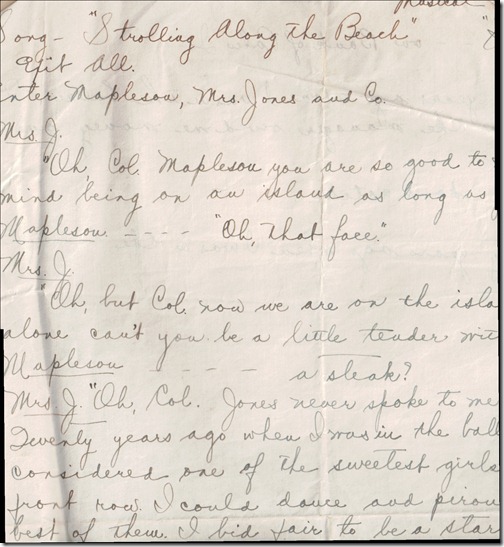 Musical
Song - "Strolling Along the Beach"
Exit All.
Enter Mapleson, Mrs. Jones and Co.
Mrs. J.
"Oh, Col. Mapleson you are so good to
mind being on an island as long as
Mapleson - - - - "Oh, that face."
Mrs. J.
"Oh, but Col. now we are on the isla
alone can't you be a little tender wit
Mapleson - - - - a steak?
Mrs. J. "Oh, Col. Jones never spoke to me
Twenly years ago when I was in the ball
considered one of the sweetest girls
front row. I could dance and pirou
best of them. I bid fair to be a star